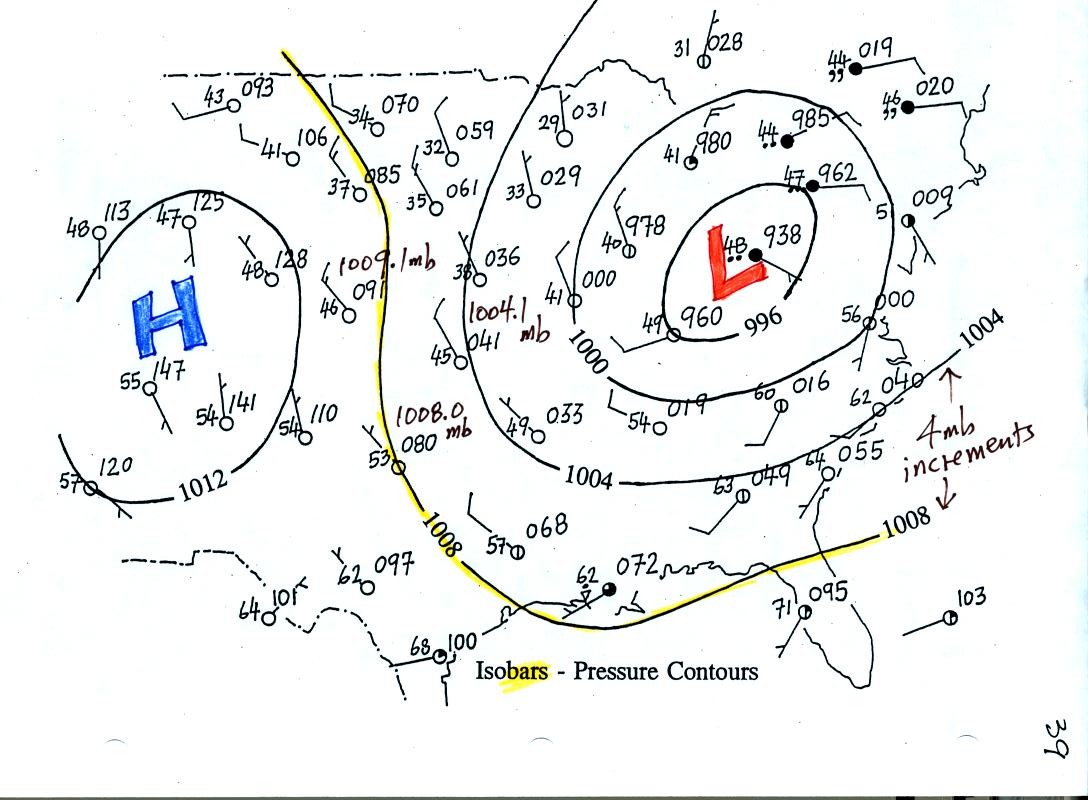 31 028
44 019
,,
46 020
,,
43 093
34 070
29 031
41 106
32 059
41 980
44 985
37 085
35 061
33 029
47 962
5 009
48 113
47 125
48 128
40 978
L
48 938
1009.1mb
38 036
46 091
41 000
H
1004.1
mb
45 041
49 960
996
56 000
1000
1004
55 147
54 141
54 110
1008.0
mb
53 080
49 033
54 019
60 016
62 040
4mb
increments
57 120
1012
1004
63 049
64 055
1008
57 068
1008
62 097
62 072
64 101
71 095
103
68 100
Isobars - Pressure Contours
39